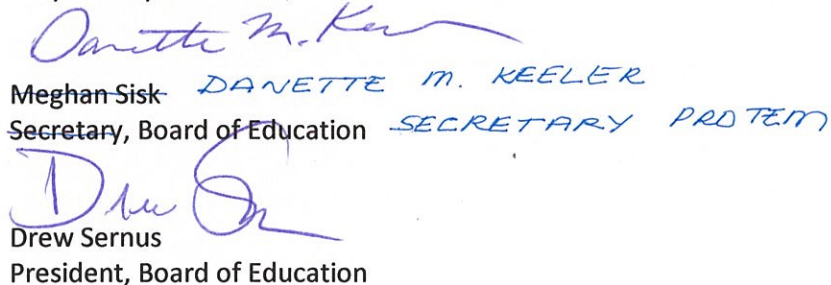 Danette M. Kee
Meghan Sisk DANETTE M. KEELER
Secretary, Board of Education SECRETARY PROTEM
Drew S
Drew Sernus
President, Board of Education